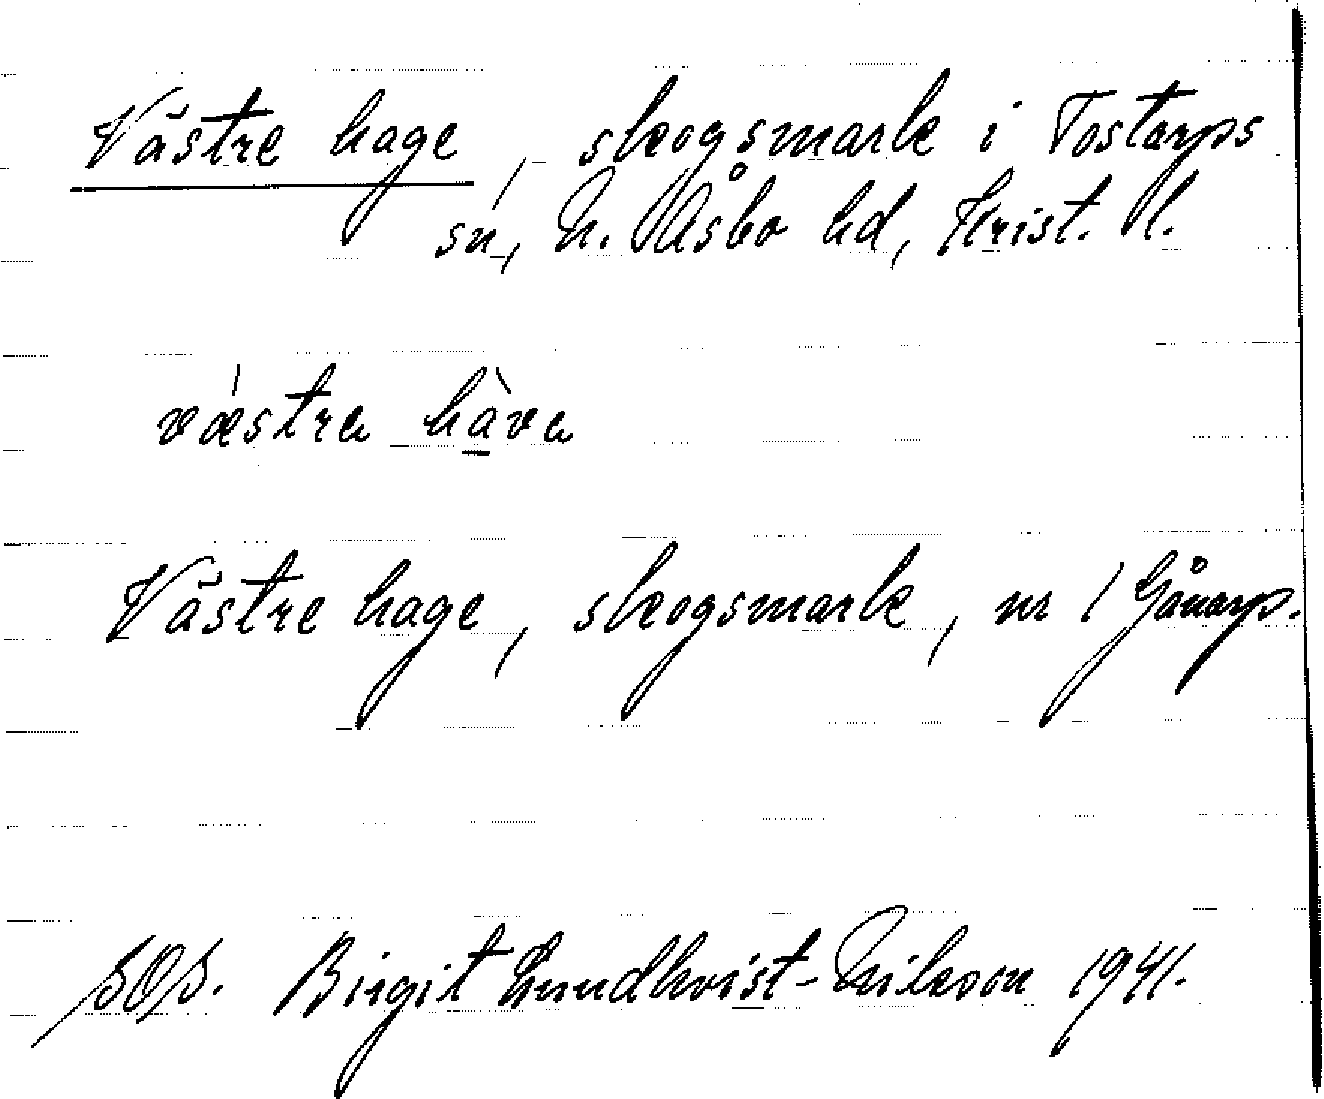 Västre hage, skogsmark i Tostarps
sn, N. Åsbo hd, Krist. l.
væstra hava
Västre hage, skogsmark, nr 1 Gånarp.
SOS. Birgit Lundkvist-Nilsson 1941.